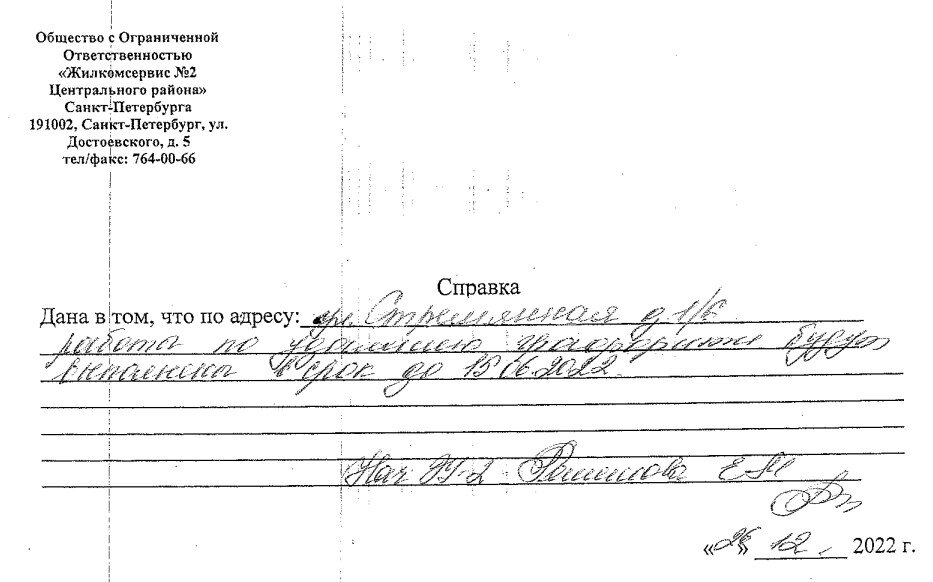 Общество с Ограниченной
Ответственностью
«Жилкомсервис №2
Центрального района»
Санкт-Петербурга
191002, Санкт-Петербург, ул.
Достоевского, д. 5
тел/факс: 764-00-66
Справка
Дана в том, что по адресу: ул. Стремянная д.
работы по удалению будут
выполнены в срок до 15.06.2022
Нач РУ-2
«26» 12. 2022 г.